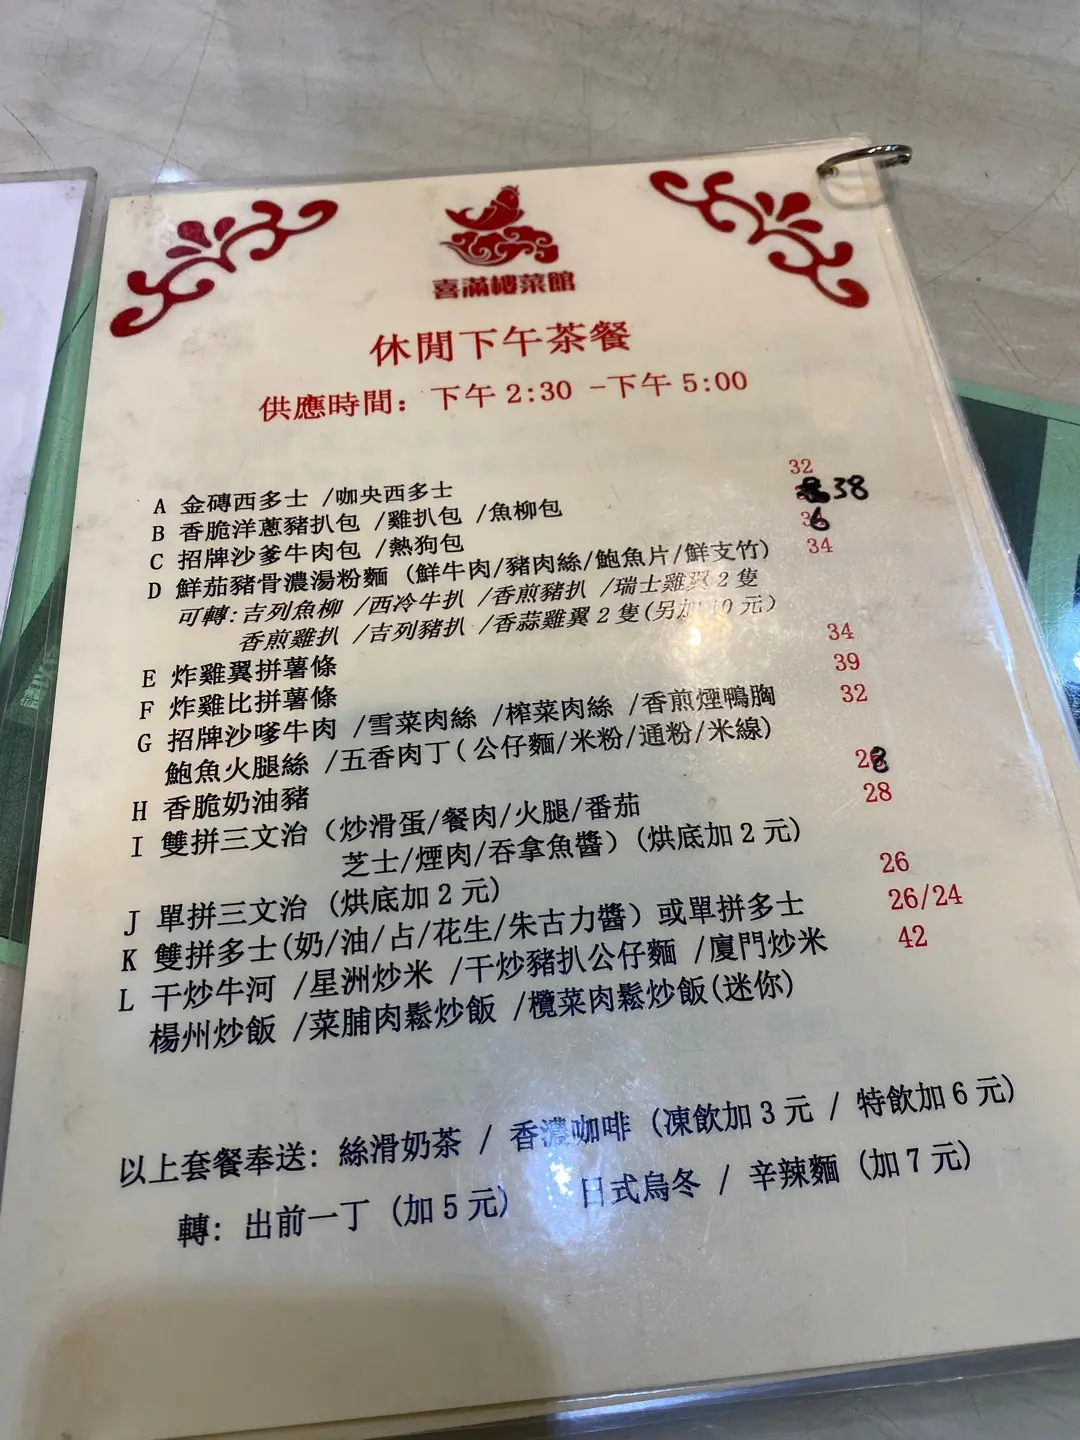 喜滿樓菜館
休閒下午茶餐
供應時間：下午 2:30 -下午 5:00
A 金磚西多士 /咖央西多士 32
B 香脆洋蔥豬扒包 /雞扒包 /魚柳包 38
C 招牌沙爹牛肉包 /熱狗包 36
D 鮮茄豬骨濃湯粉麵 (鮮牛肉/豬肉絲/鮑魚片/鮮支竹) 34
可轉:吉列魚柳 /西冷牛扒 /香煎豬扒 /瑞士雞翼 2 隻
香煎雞扒 /吉列豬扒 /香蒜雞翼 2 隻(另加 10 元)
E 炸雞翼拼薯條 34
F 炸雞比拼薯條 39
G 招牌沙嗲牛肉 /雪菜肉絲 /榨菜肉絲 /香煎煙鴨胸 32
鮑魚火腿絲 /五香肉丁 (公仔麵/米粉/通粉/米線)
H 香脆奶油豬 28
I 雙拼三文治 (炒滑蛋/餐肉/火腿/番茄 28
芝士/煙肉/吞拿魚醬) (烘底加 2 元)
J 單拼三文治 (烘底加 2 元) 26
K 雙拼多士(奶/油/占/花生/朱古力醬) 或單拼多士 26/24
L 干炒牛河 /星洲炒米 /干炒豬扒公仔麵 /廈門炒米 42
楊州炒飯 /菜脯肉鬆炒飯 /欖菜肉鬆炒飯(迷你)
以上套餐奉送: 絲滑奶茶 / 香濃咖啡 (凍飲加 3 元 / 特飲加 6 元)
轉: 出前一丁 (加 5 元) 日式烏冬 / 辛辣麵 (加 7 元)